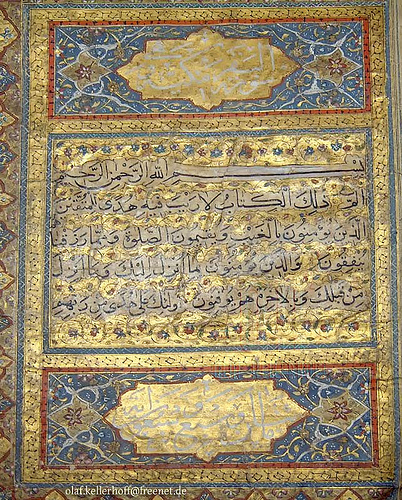 بسم الله الرحمن الرحيم
الم ذلك الكتاب لا ريب فيه هدى للمتقين
الذين يؤمنون بالغيب ويقيمون الصلوة ومما رزقناهم
ينفقون والذين يؤمنون بما انزل اليك وما انزل
من قبلك وبالاخرة هم يوقنون اولئك على هدى من ربهم
olaf.kellerhoff@freenet.de